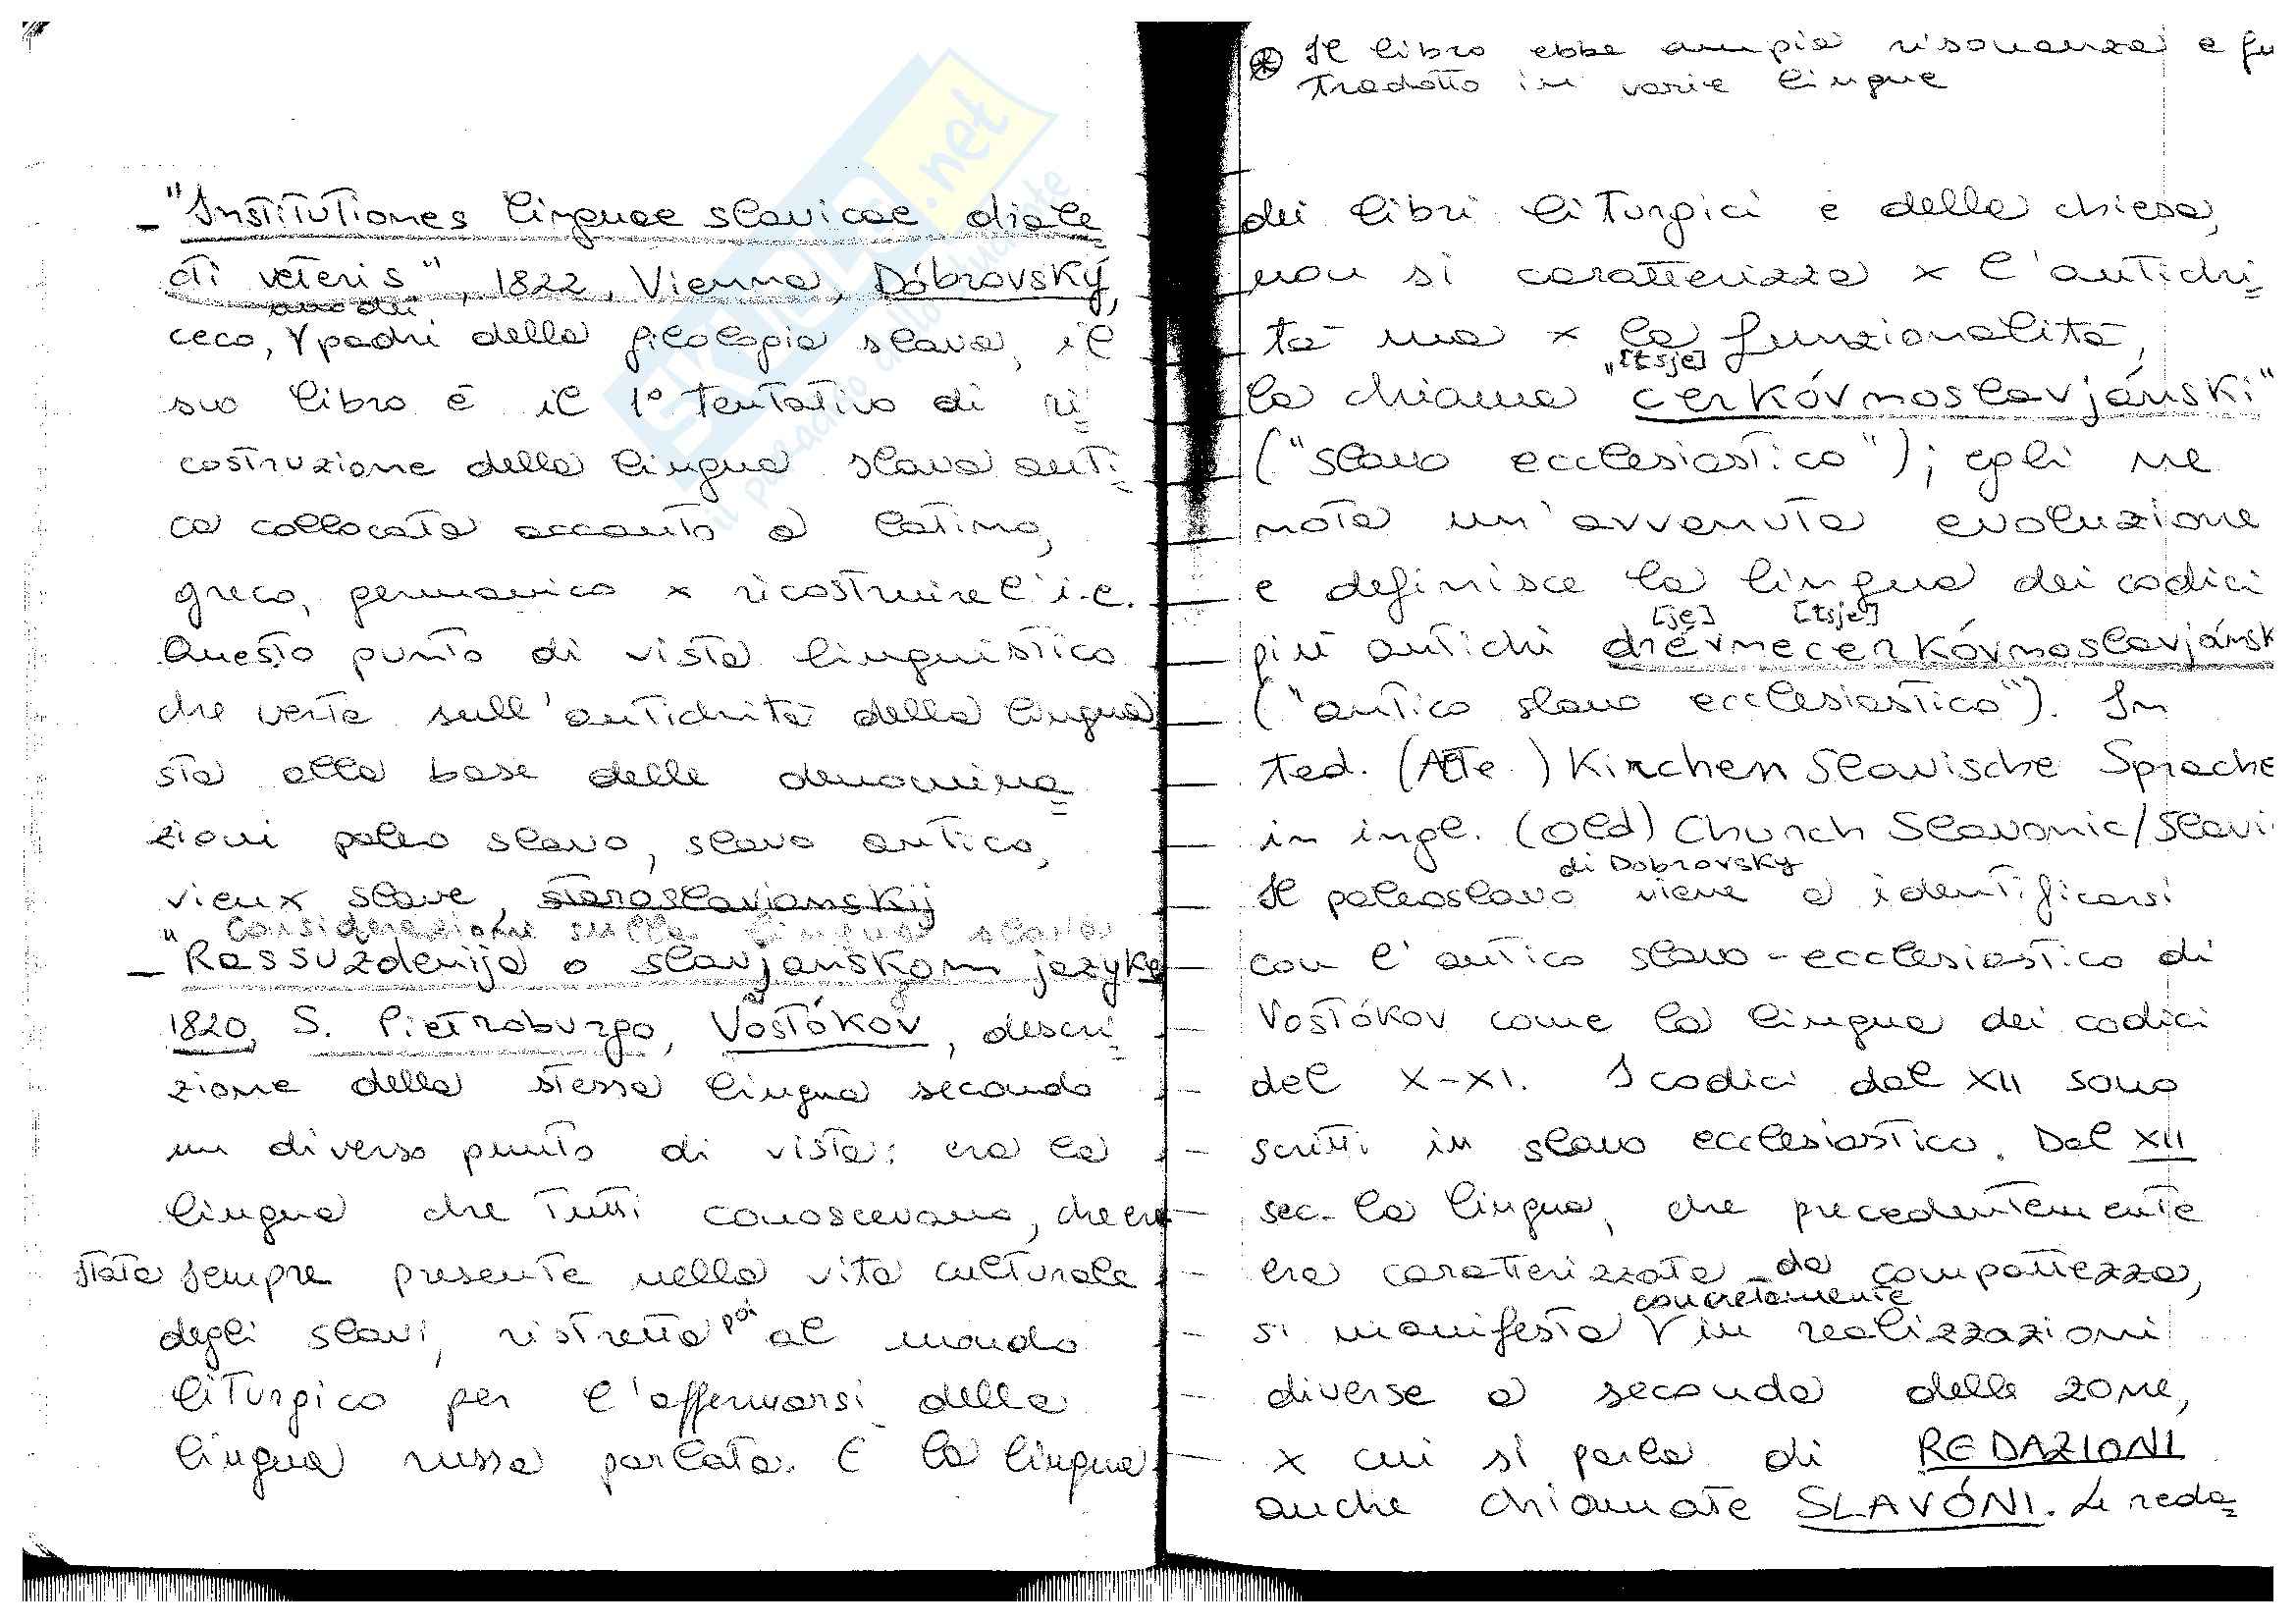 - "Institutiones linguae slavicae diale=
cti veteris", 1822, Vienna, Dóbrovský,
uno dei
ceco, V padri della filologia slava, il
suo libro è il 1° tentativo di ri=
costruzione della lingua slava anti=
ca collocata accanto a latino,
greco, germanico x ricostruire l'i.e.
Questo punto di vista linguistico
che verte sull'antichità della lingua
sta alla base delle denomina=
zioni paleo slavo, slavo antico,
vieux slave, staroslavjanskij
"considerazione sulla lingua slava
- Rassuzdenija o slavjanskom jazyke
1820, S. Pietroburgo, Vostókov, descri=
zione della stessa lingua secondo
un diverso punto di vista: era la
lingua che tutti conoscevano, che era
stata sempre presente nella vita culturale
degli slavi, ristretta poi al mondo
liturgico per l'affermarsi della
lingua russa parlata. È la lingua
⊛ Il libro ebbe ampia risonanza e fu
tradotto in varie lingue
dei libri liturgici e della chiesa,
non si caratterizza x l'antichi=
tà ma x la funzionalità,
"[tsje]
la chiama cerkóvnoslavjánski"
("slavo ecclesiastico"); egli ne
nota un'avvenuta evoluzione
e definisce la lingua dei codici
[je] [tsje]
più antichi drévnecerkóvnoslavjánsk
("antico slavo ecclesiastico"). In
ted. (Alte.) Kirchen Slavische Sprache
in ingl. (Old) Church Slavonic/Slavi
di Dobrovsky
Il paleoslavo viene a identificarsi
con l'antico slavo-ecclesiastico di
Vostókov come la lingua dei codici
del X-XI. I codici dal XII sono
scritti in slavo ecclesiastico. Dal XII
sec. la lingua, che precedentemente
era caratterizzata da compattezza,
concretamente
si manifesta V in realizzazioni
diverse a seconda delle zone,
x cui si parla di REDAZIONI
anche chiamate SLAVÓNI. Le reda=